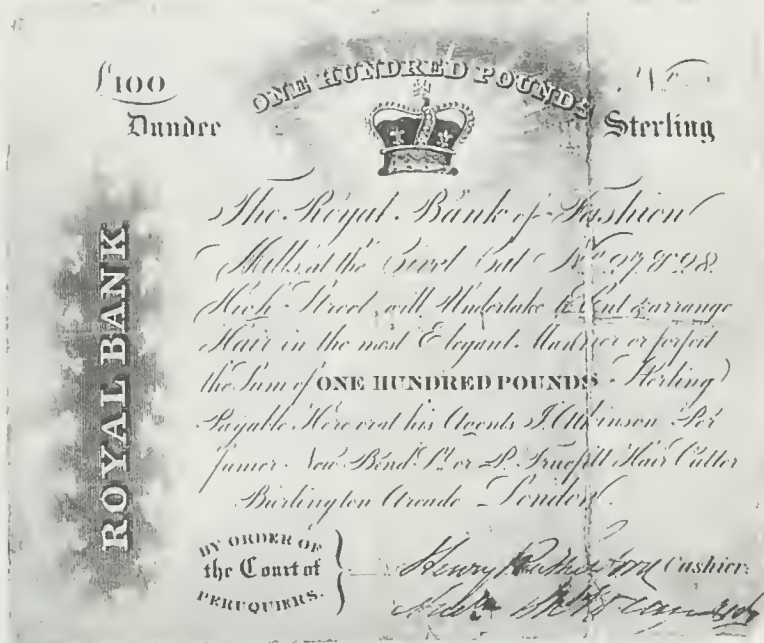 £100
ONE HUNDRED POUNDS
Dundee
Sterling
ROYAL BANK
The Royal Bank of Fashion
Mills, at the Civet Cat No. 97 & 98
High Street, will Undertake to Cut & arrange
Hair in the most Elegant Manner or forfeit
the Sum of ONE HUNDRED POUNDS Sterling
Payable Here or at his Agents J. Atkinson Per
fumer New Bond St. or P. Truefitt Hair Cutter
Burlington Arcade London
BY ORDER OF
the Court of
PERUQUIERS.
Henry Cashier